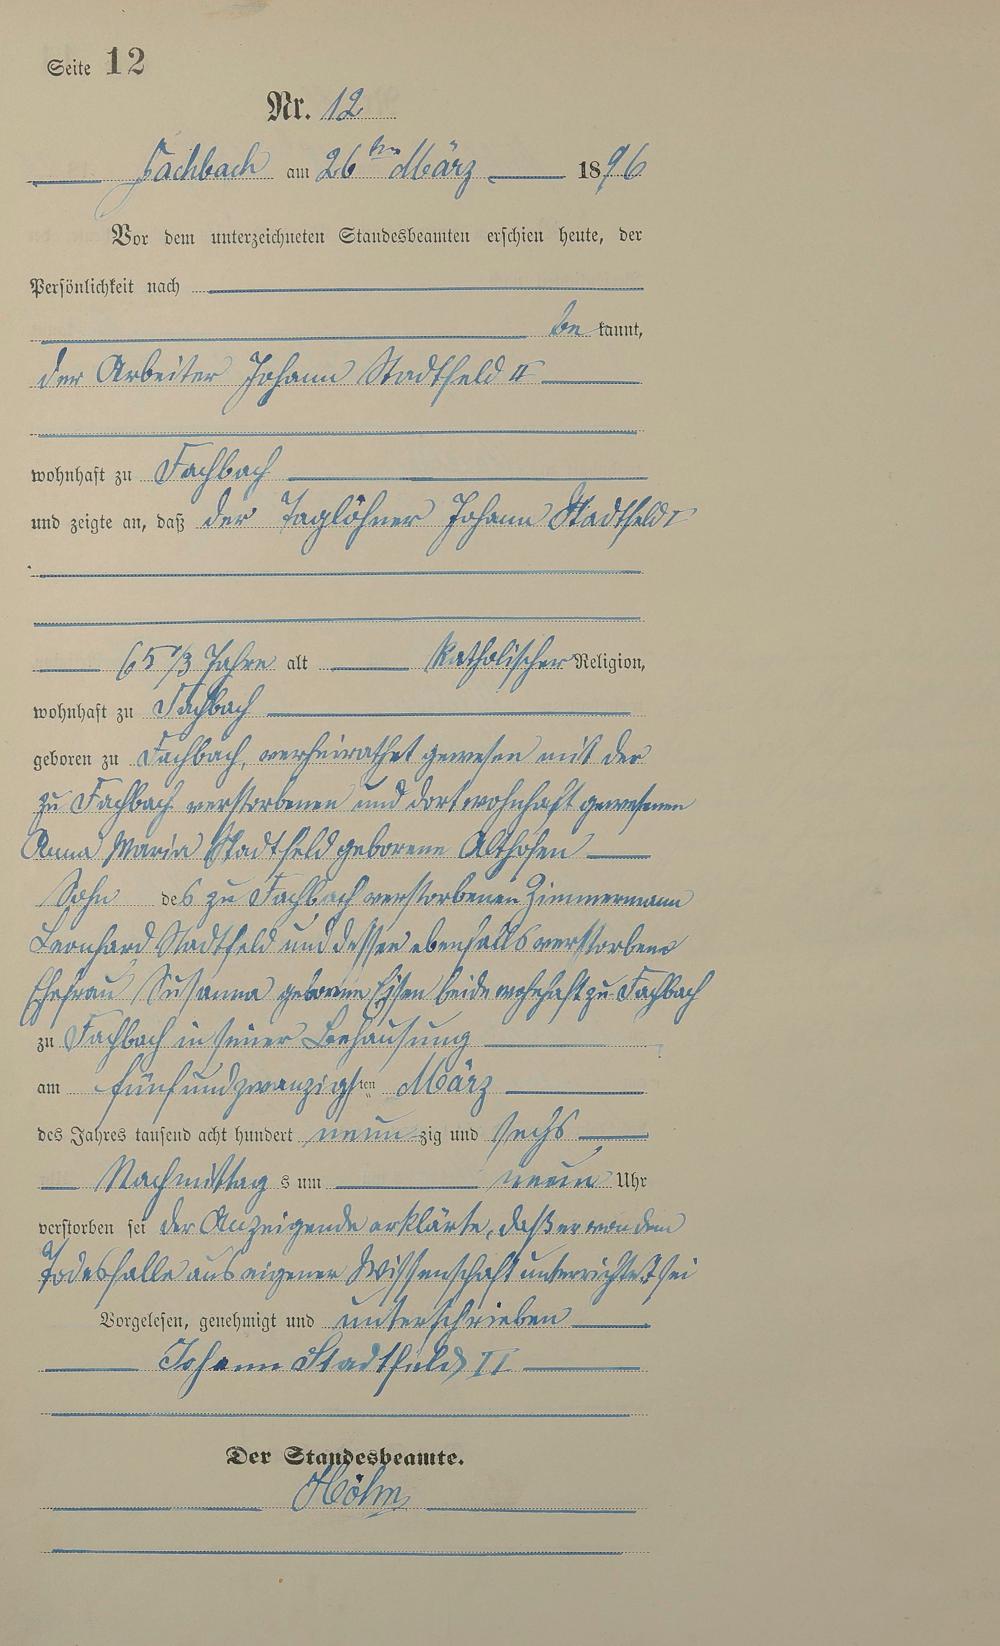 Seite 12
Nr. 12
Fachbach am 26ten März 1896
Vor dem unterzeichneten Standesbeamten erschien heute, der
Persönlichkeit nach
be kannt,
der Arbeiter Johann Stadtfeld II
wohnhaft zu Fachbach
und zeigte an, daß der Taglöhner Johann Stadtfeld I
65 1/3 Jahre alt katholischer Religion,
wohnhaft zu Fachbach
geboren zu Fachbach, verheirathet gewesen mit der
zu Fachbach verstorbenen und dort wohnhaft gewesenen
Anna Maria Stadtfeld geborene Althofen
Sohn des zu Fachbach verstorbenen Zimmermann
Leonhard Stadtfeld und dessen ebenfalls verstorbene
Ehefrau Susanna geborene beide wohnhaft zu Fachbach
zu Fachbach in seiner Behausung
am fünfundzwanzigsten März
des Jahres tausend acht hundert neunzig und sechs
Nachmittags um neun Uhr
verstorben sei der Anzeigende erklärte, daß er von dem
Todesfalle aus eigener Wissenschaft unterrichtet sei
Vorgelesen, genehmigt und unterschrieben
Johann Stadtfeld II
Der Standesbeamte.